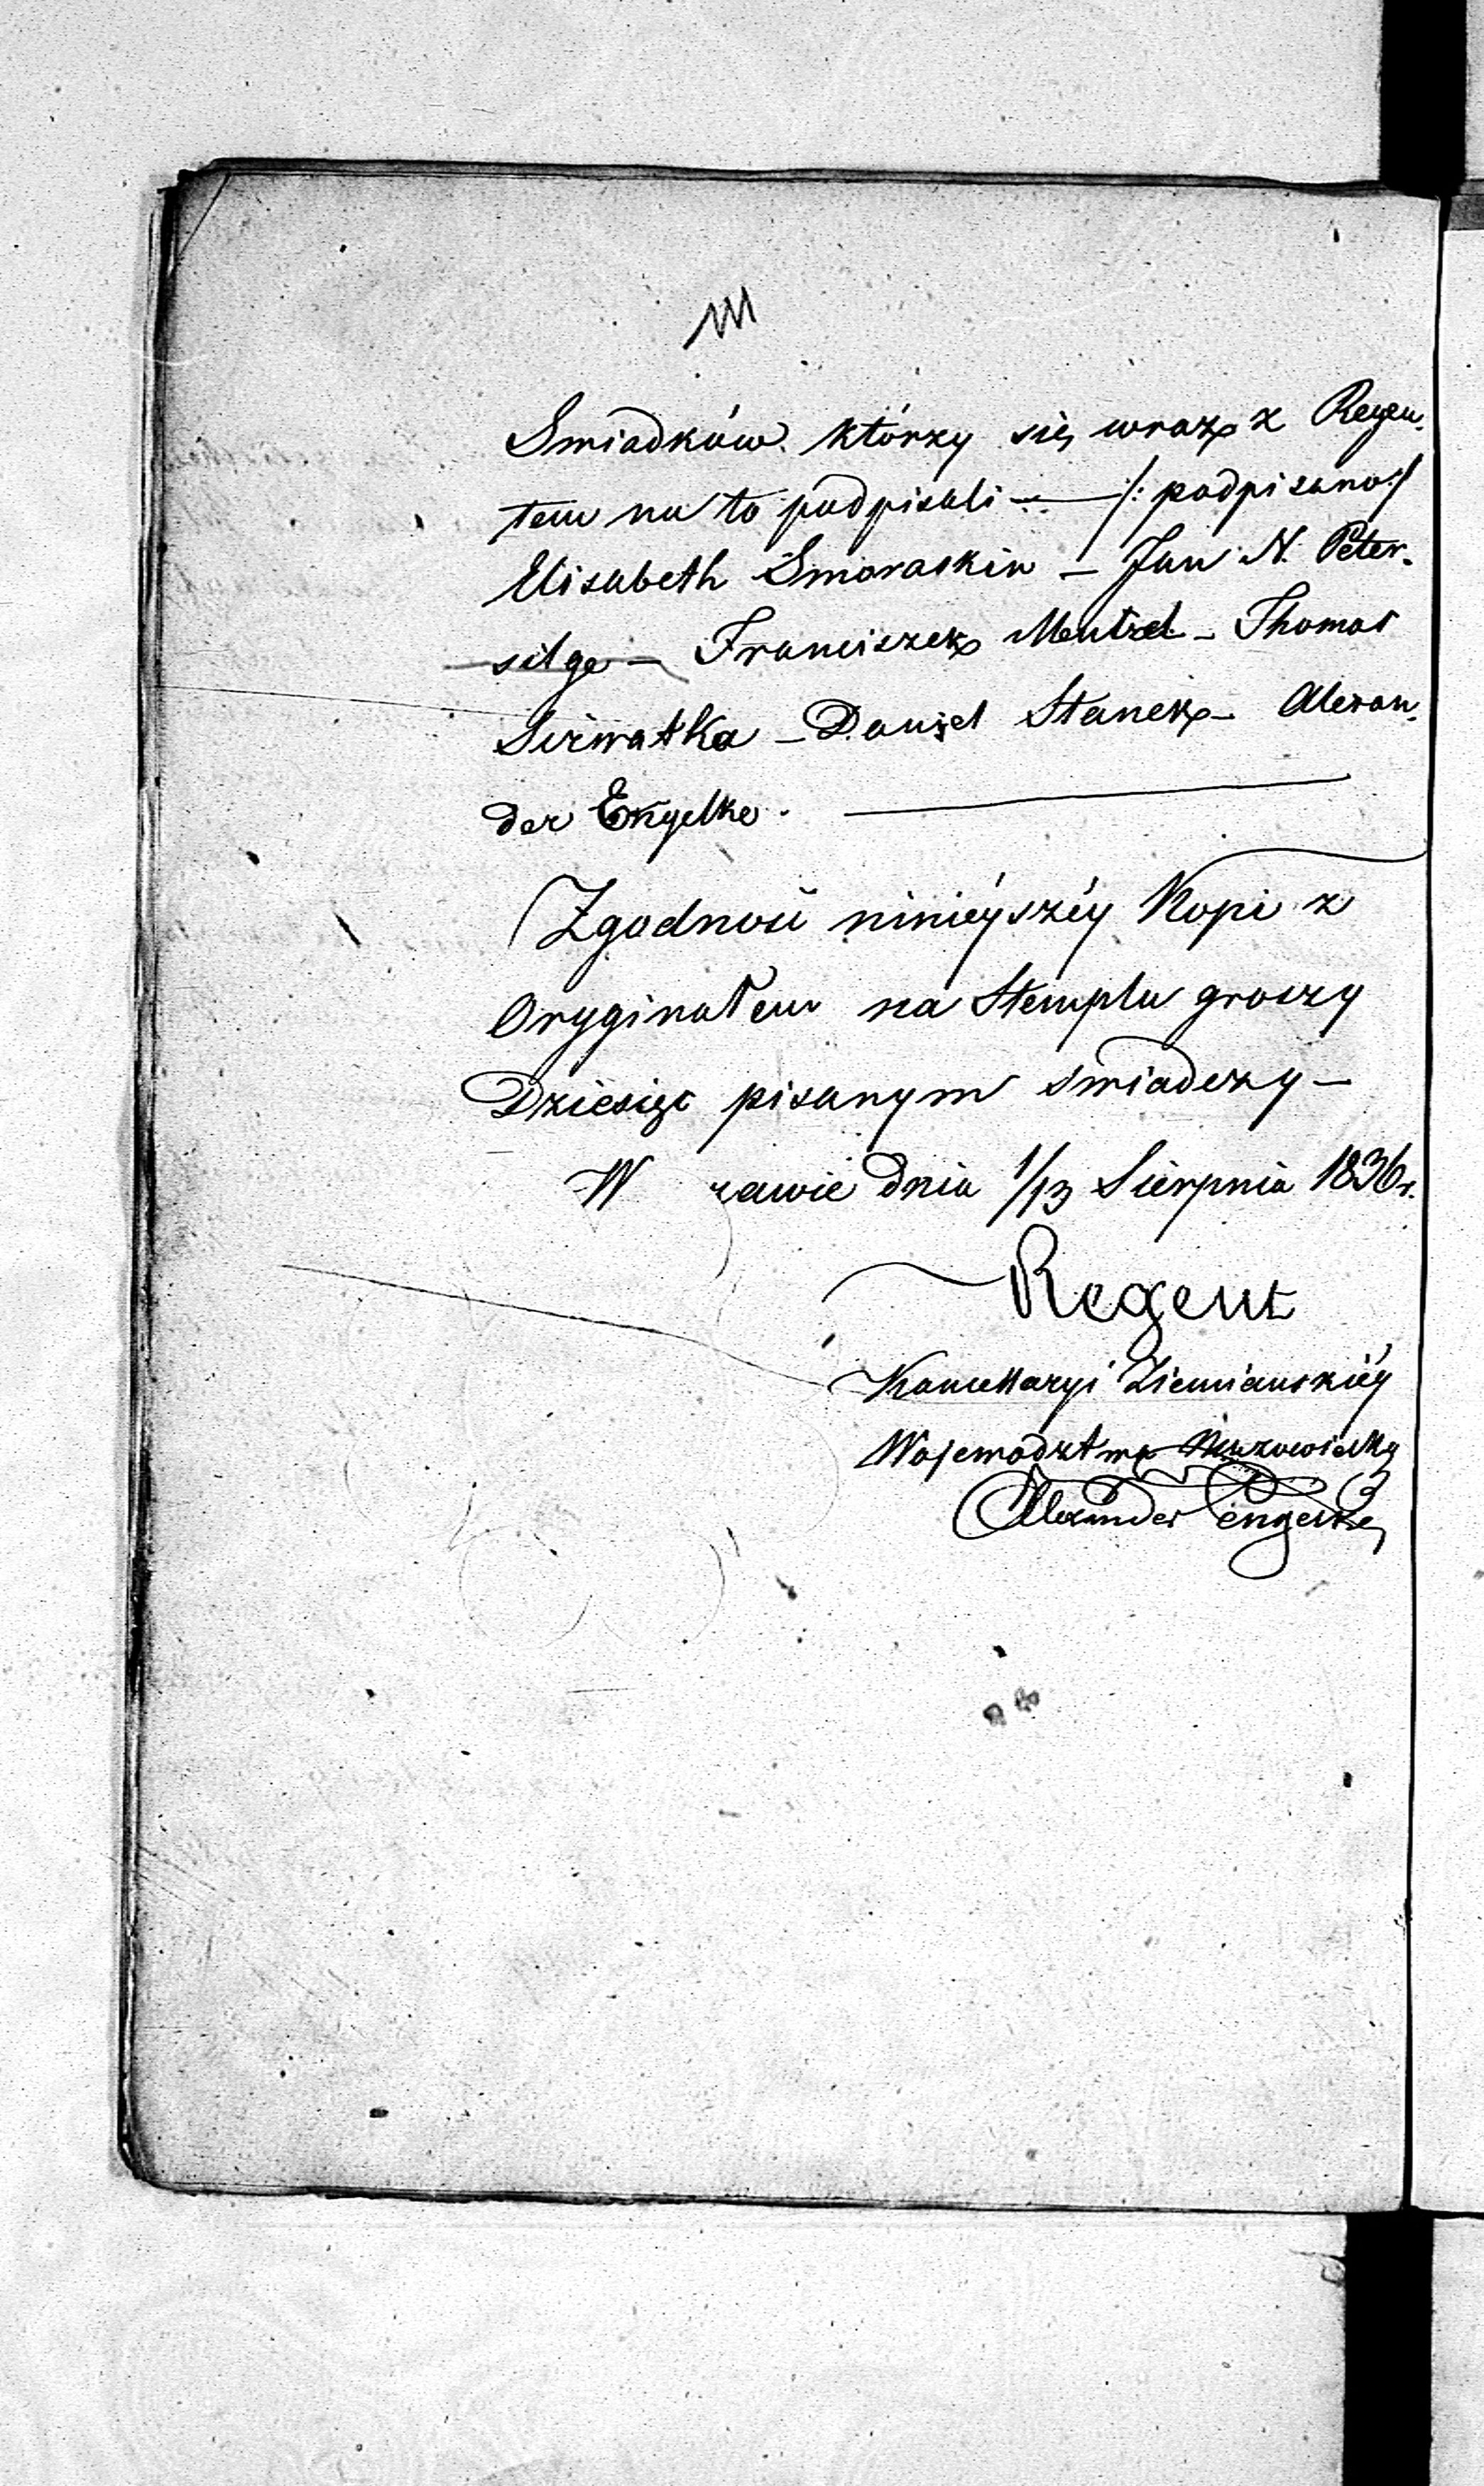 Swiadków. którzy się wraz z Regen-
tem na to podpisali — /: podpisano :/
Elisabeth Smoraskin — Jan N. Peter-
silge — Franciszek Mentzel — Thomas
Sirwatka — Daniel Stanek — Alexan-
der Engelke. —
Zgodność ninieyszéy Kopi z
Oryginałem na Stemplu groszy
Dziesięć pisanym swiadczy —
W rawie dnia 1/13 Sierpnia 1836 r.
Regent
Kancellaryi Ziemianskiéy
Wojewodztwa Mazowiecky
Alexander Engelke